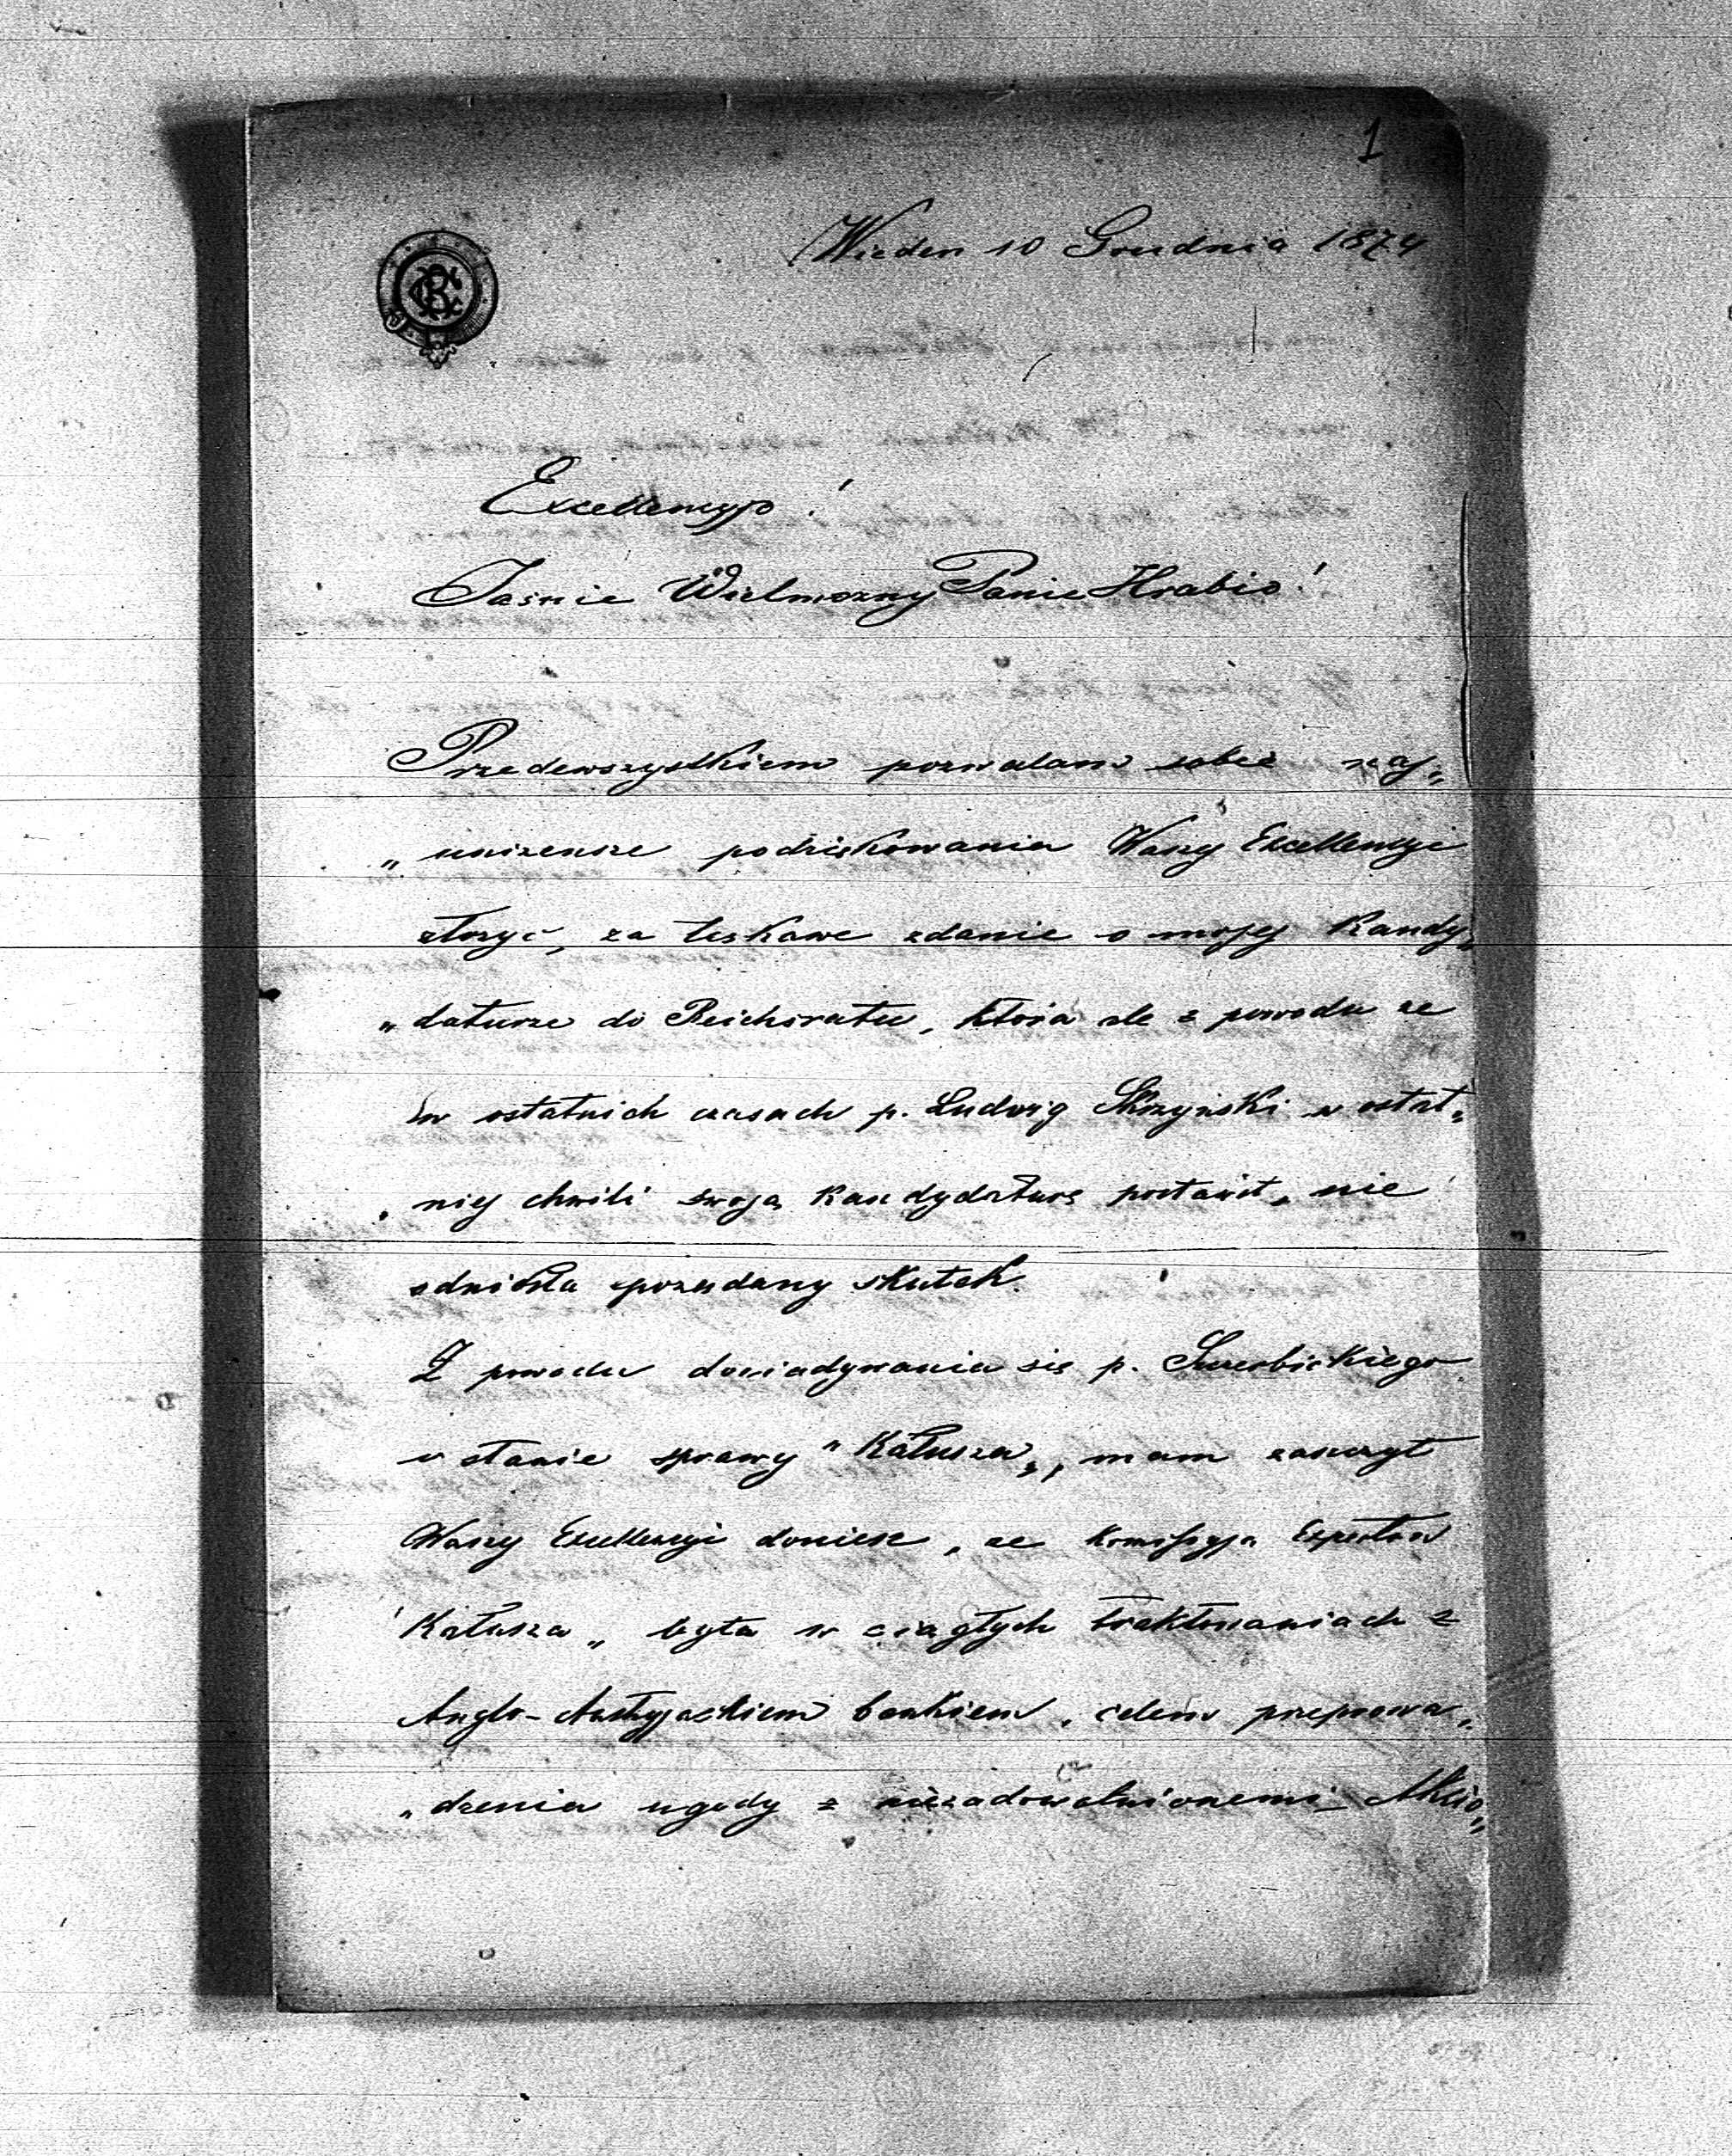 1
Wieden 10 Grudnia 1874
Excellencyjo!
Jasnie Wielmozny Panie Hrabio!
Przedewszystkiem pozwalam sobie naj„
„unizensze podziękowania Waszy Excellencyi
złozyć, za łaskawe zdanie o mojej Kandy„
„daturze do Reichsratu, która ale z powodu ze
w ostatnich czasach p. Ludwig Skrzyński w ostat„
„niej chwili swoją Kandydaturę postawił, nie
odniosła pozadany skutek.
Z powodu dowiadywania się p. Szczerbickiego
o stanie sprawy "Kałusza„, mam zaszczyt
Waszy Excellencyi doniesc, ze Komissyja Expertów
"Kałusza„ była w ciągłych traktowaniach z
Anglo-Austryjackiem bankiem, celem przeprowa„
„dzenia ugody z niezadowolnionemi Akcio„